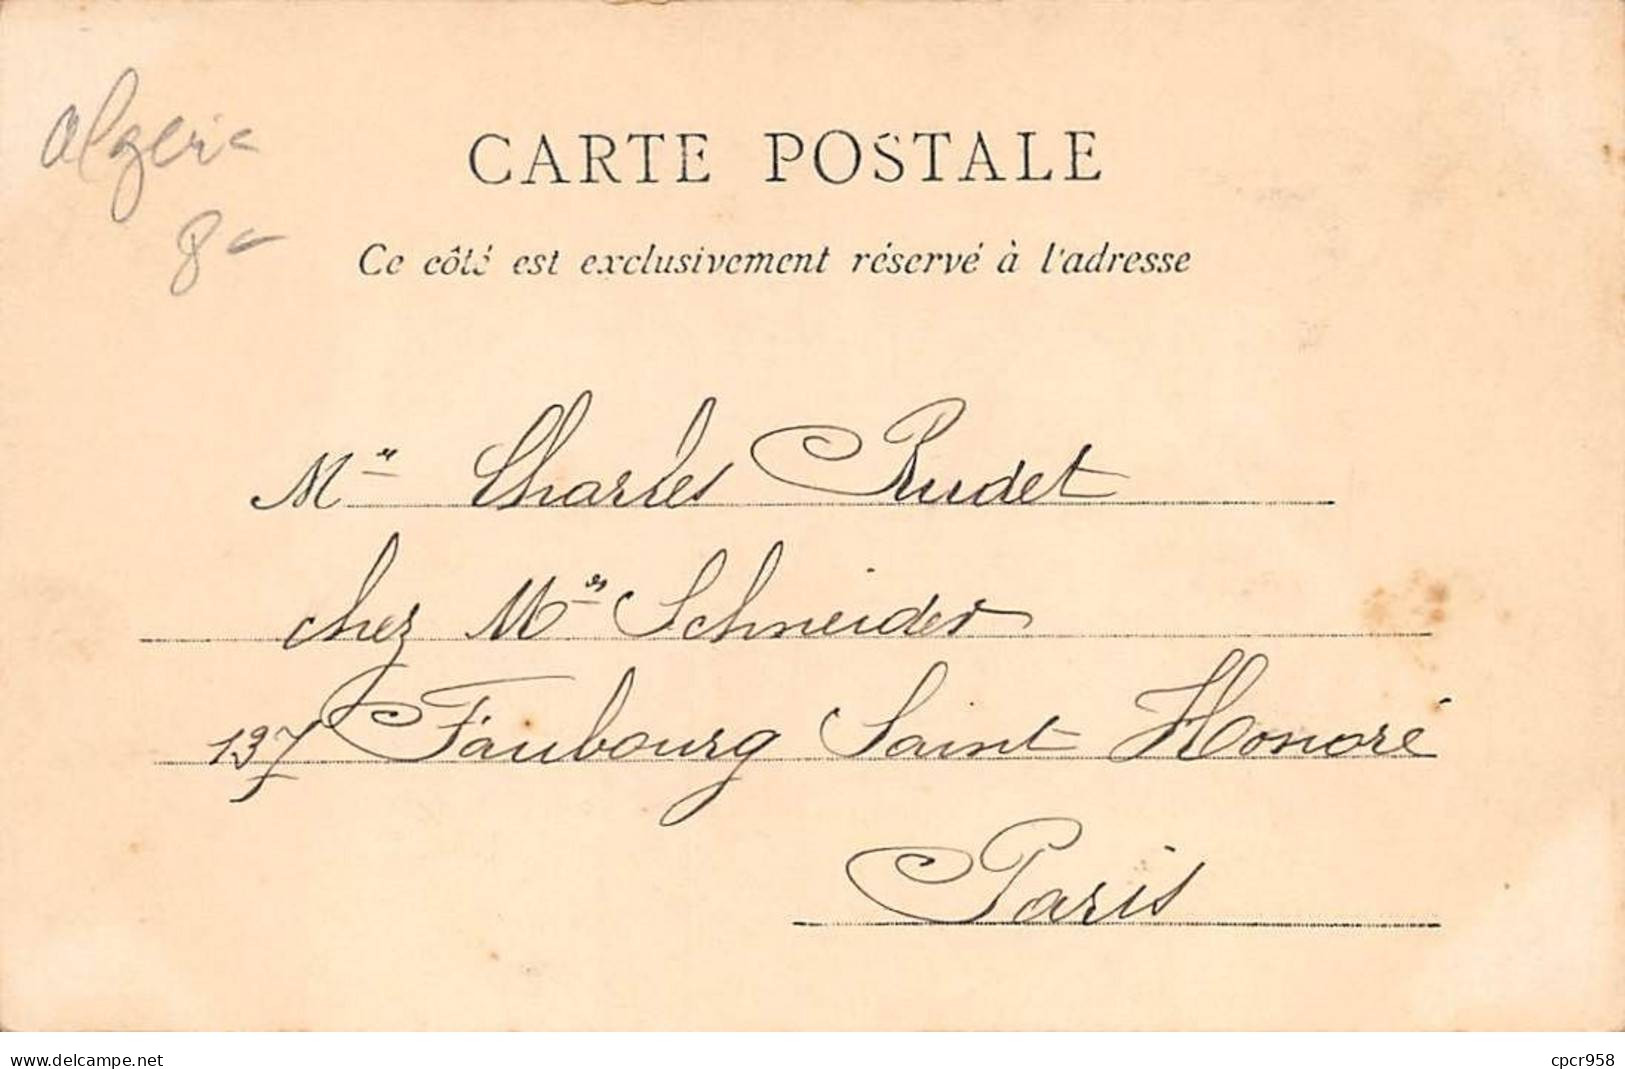 Algerie
8-
CARTE POSTALE
Ce côté est exclusivement réservé à l'adresse
Mr Charles Rudet
chez Mrs Schneider
137 Faubourg Saint Honoré
Paris
www.delcampe.net
cpcr958